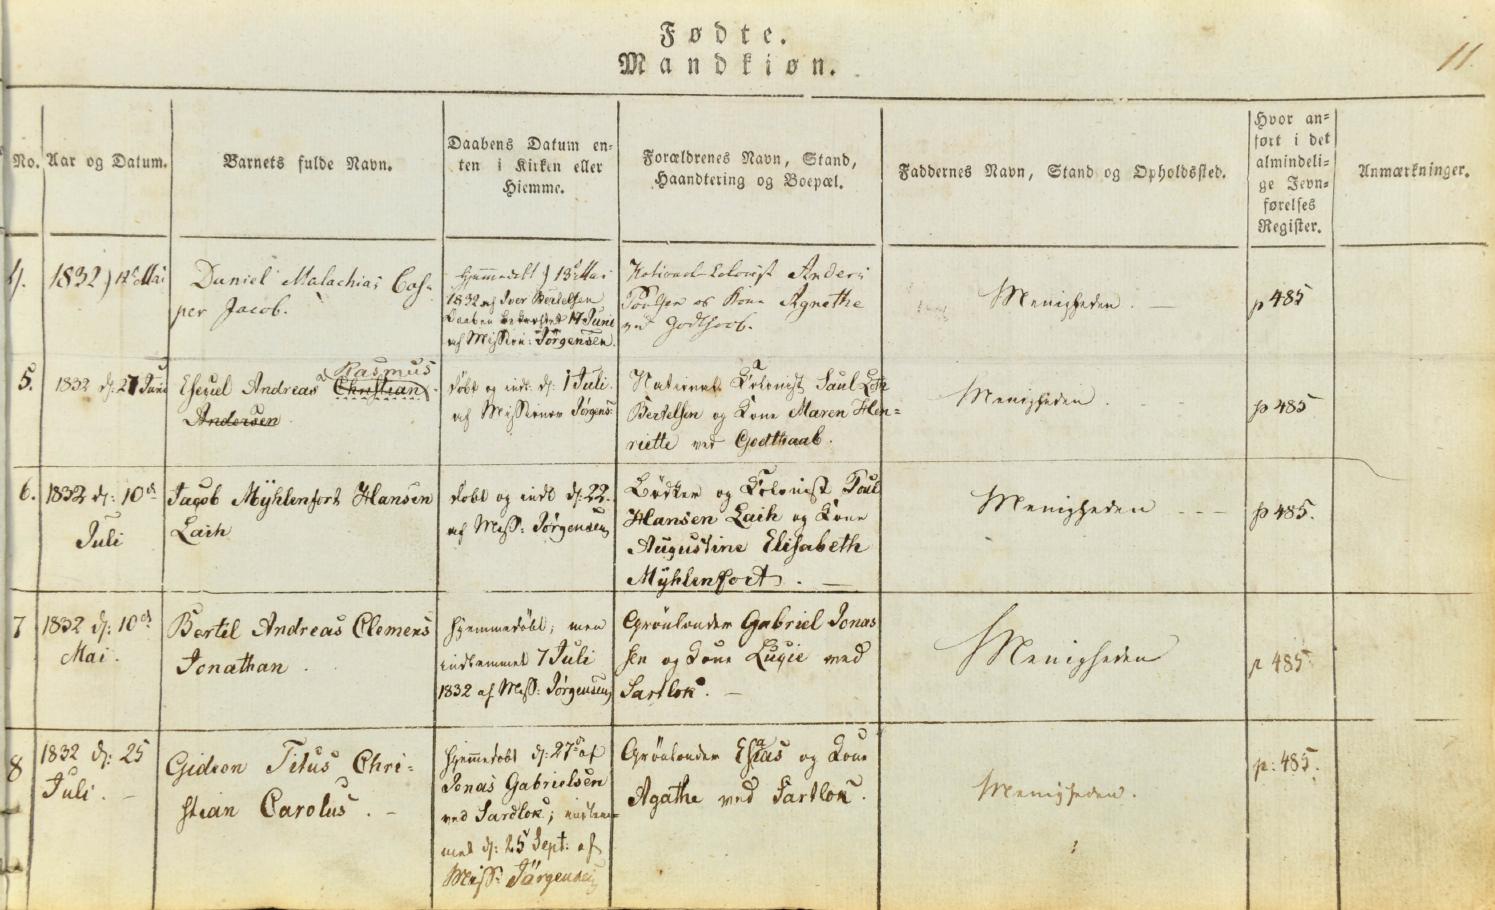 Fødte.
Mandkiøn.
11.
No.
Aar og Datum.
Barnets fulde Navn.
Daabens Datum en-
ten i Kirken eller
Hiemme.
Forældrenes Navn, Stand,
Haandtering og Boepæl.
Faddernes Navn, Stand og Opholdssted.
Hvor an-
ført i det
almindeli-
ge Jevn-
førelses
Register.
Anmærkninger.
4.
1832, Mai
Daniel Malachias Cas-
per Jacob.
Hjemmedøbt 13 Mai
1832 af Iver Bertelsen
Daaben bekræftet 17 Juni
af Mission: Jørgensen.
National-Colonist Anders
Poulsen og Kone Agnethe
ved Godthaab.
Menigheden.
p 485
5.
1832 d: 27 Juni
Esexiel Andreas Christian
Rasmus
Andersen
døbt og indt. d: 1 Juli.
af Missionær Jørgens:
National Colonist Saul
Bertelsen og Kone Maren Hen-
riette ved Godthaab.
Menigheden.
p 485
6.
1832 d: 10de
Juli
Jacob Mÿhlenfort Hansen
Laih
døbt og indt d: 22.
af Miss: Jørgensen
Bødker og Colonist Poul
Hansen Laih og Kone
Augustine Elisabeth
Mÿhlenfort. —
Menigheden - - -
p 485.
7
1832 d: 10de
Mai.
Bertel Andreas Clemens
Jonathan.
Hjemmedöbt; men
indlemmet 7 Juli
1832 af Miss: Jørgensen
Grönlænder Gabriel Jonas
sen og Kone Lucie ved
Sartlok. —
Menigheden
p 485
8
1832 d: 25
Juli. —
Gideon Titus Chri-
stian Carolus. —
Hjemmedöbt d: 27de af
Jonas Gabrielsen
ved Sardlok; indlem-
met d: 25 Sept: af
Miss: Jørgensen
Grönlænder Esaias og Kone
Agathe ved Sartlok.
Menigheden.
p: 485.